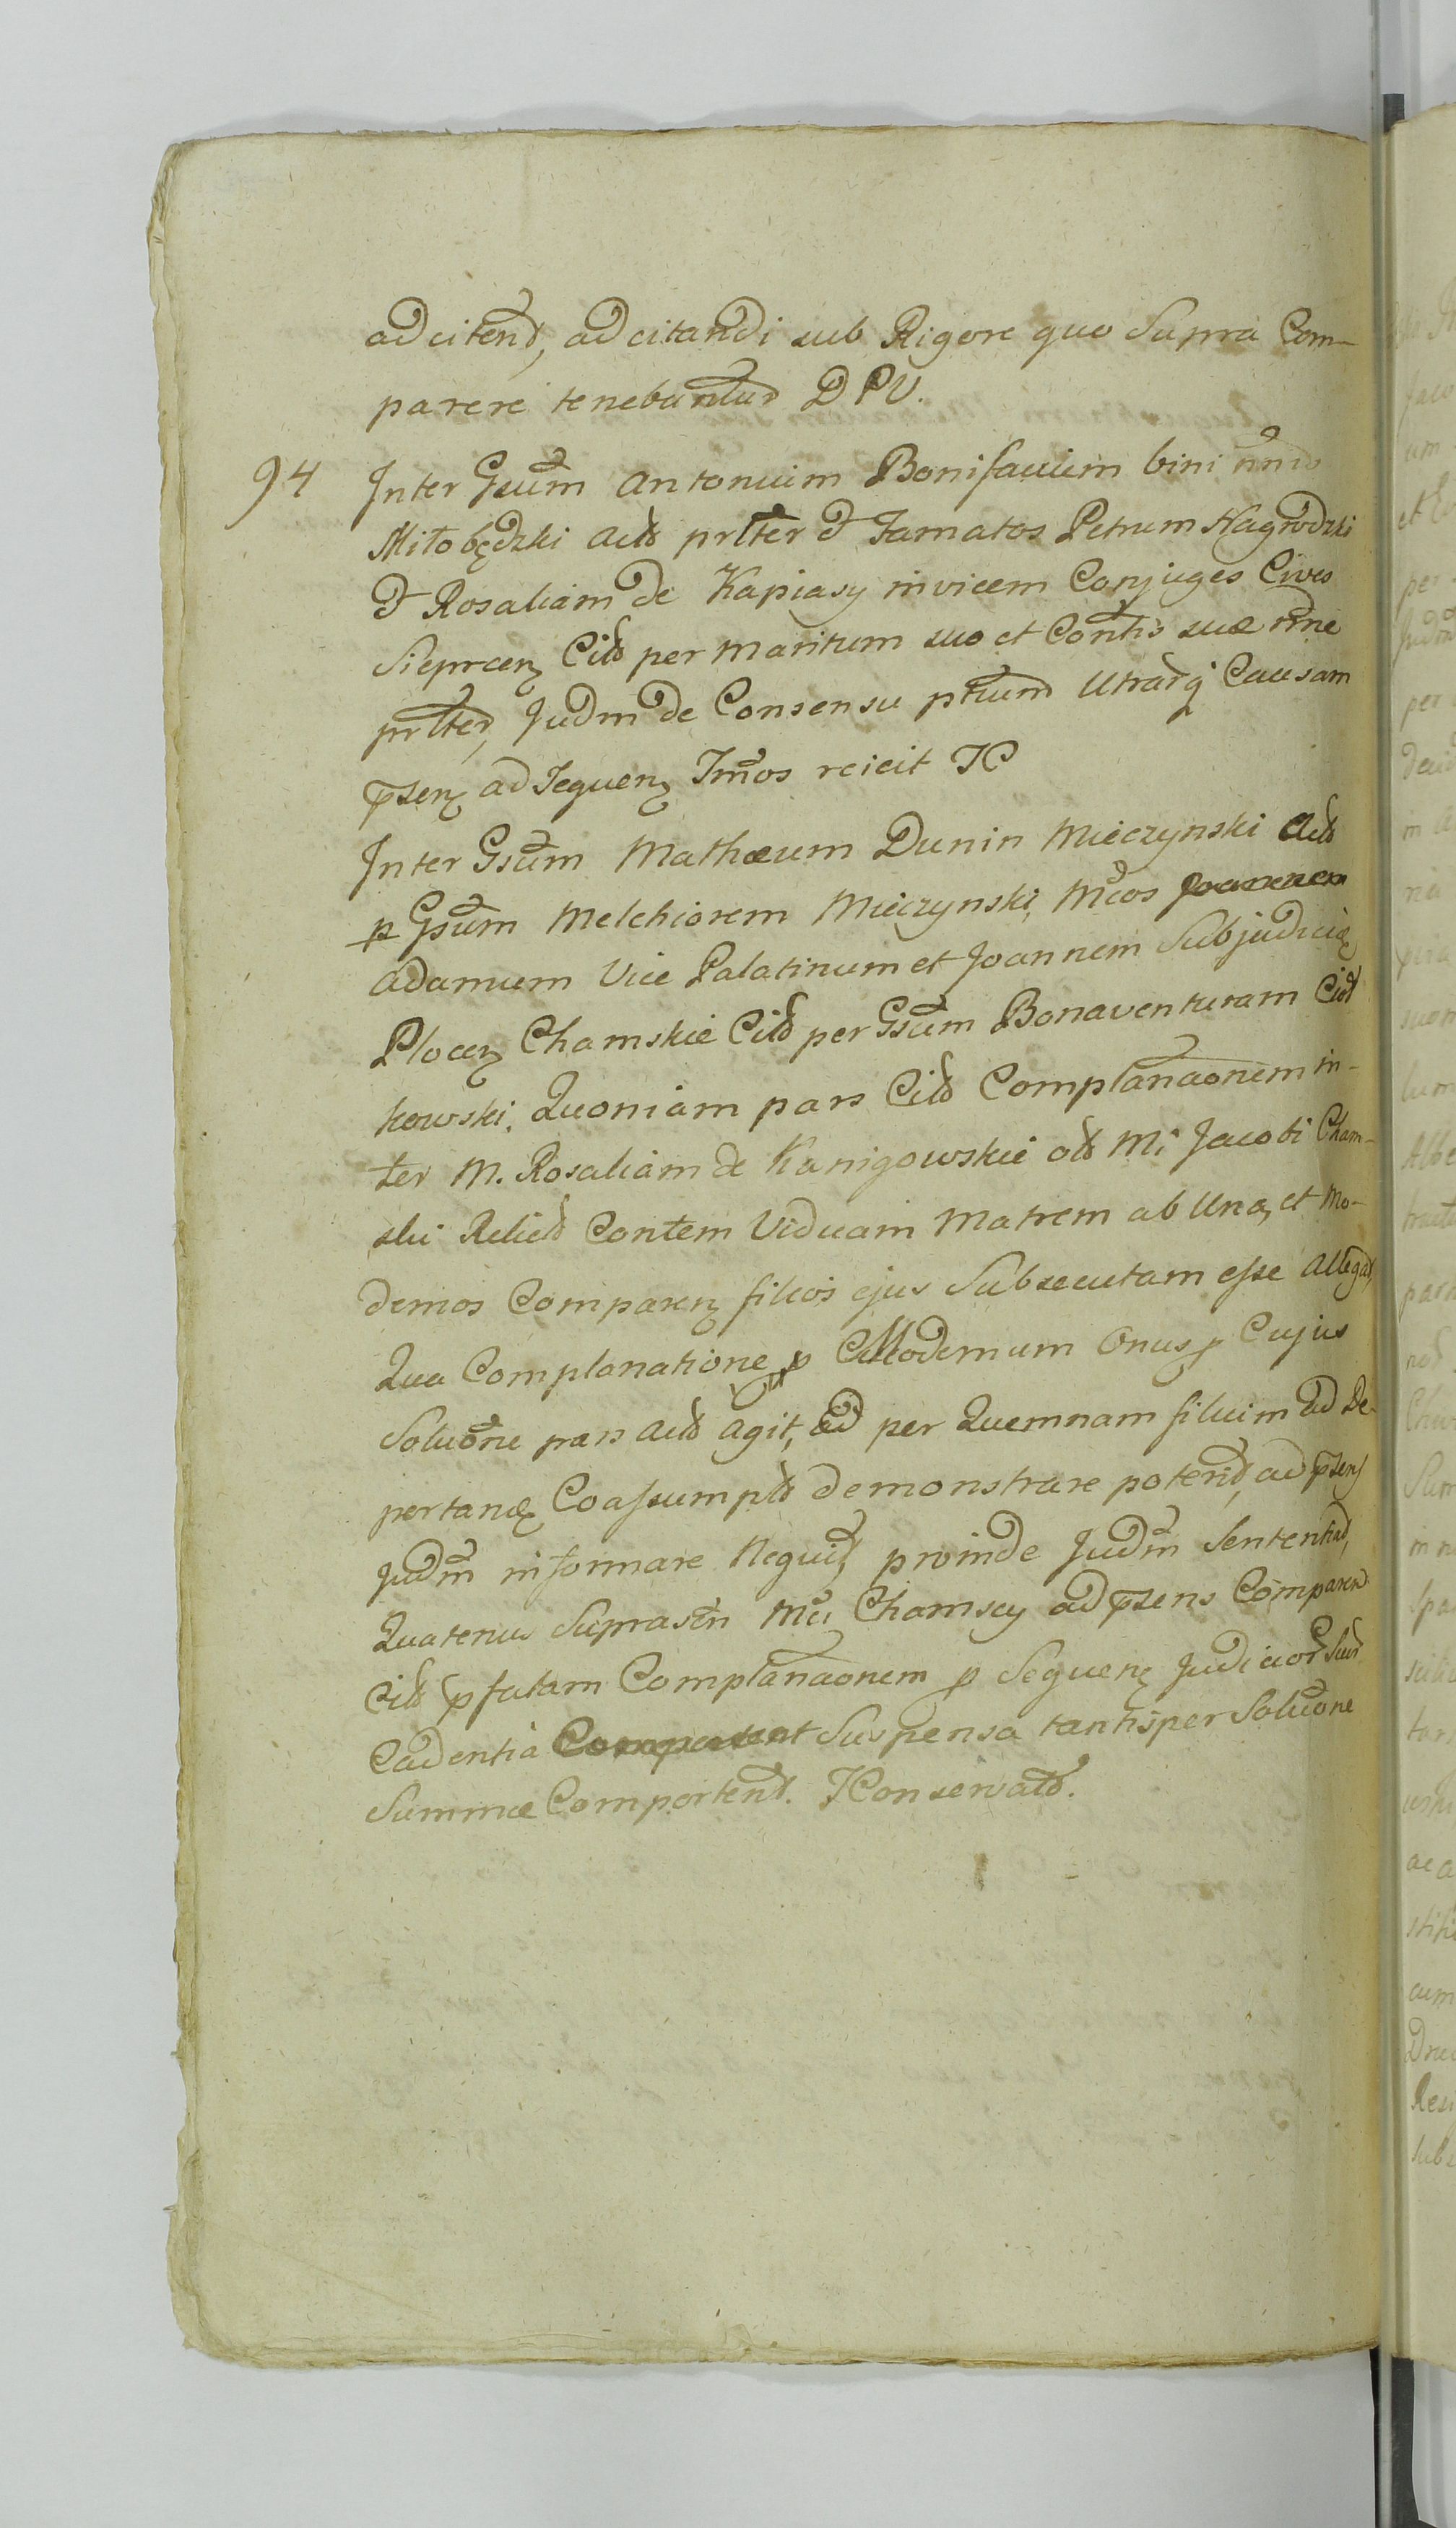 adcitent, adcitandi sub Rigore quo Supra Com-
parere tenebuntur DPU.
94 Inter Gsum Antonium Bonifacium bini nnis
Miłobędzki Act prlter & Famatos Petrum Nagrodzki
& Rosaliam de Kapiasy invicem Conjuges Cives
Sieprcen Cit per maritum suo et Contis suæ nne
prlter, Judm de Consensu ptium Utrarq Causam
psen ad Sequen Tmos reicit K
Inter Gsum Mathæum Dunin Mieczynski Act
p Gsum Melchiorem Mieczynski, Mcos Joannem
Adamum Vice Palatinum et Joannem Subjudicē
Plocen Chamskie Cit per Gsum Bonaventuram Cioł
kowski, Quoniam pars Cit Complanaonem in-
ter M. Rosaliam de Kanigowskie olt Mi Jacobi Cham-
ski Relict Contem Viduam Matrem ab Una, et Mo-
dernos Comparen filios ejus Subsecutam esse Allegat,
Qua Complanatione Modernum Onus p Cujus
Soluone pars Act agit, per Quemnam filium ad De-
portanē Coassumpt demonstrare potent, ad psens
Judm informare Nequit, proinde Judm Sententiat,
Quatenus Suprascn Mci Chamscy ad psens Comparen
Cit pfatam Complanaonem p Sequen Judicior Suor
Cadentia Comportent Suspensa tantisper Soluone
Summæ Comportent. Konservatt.